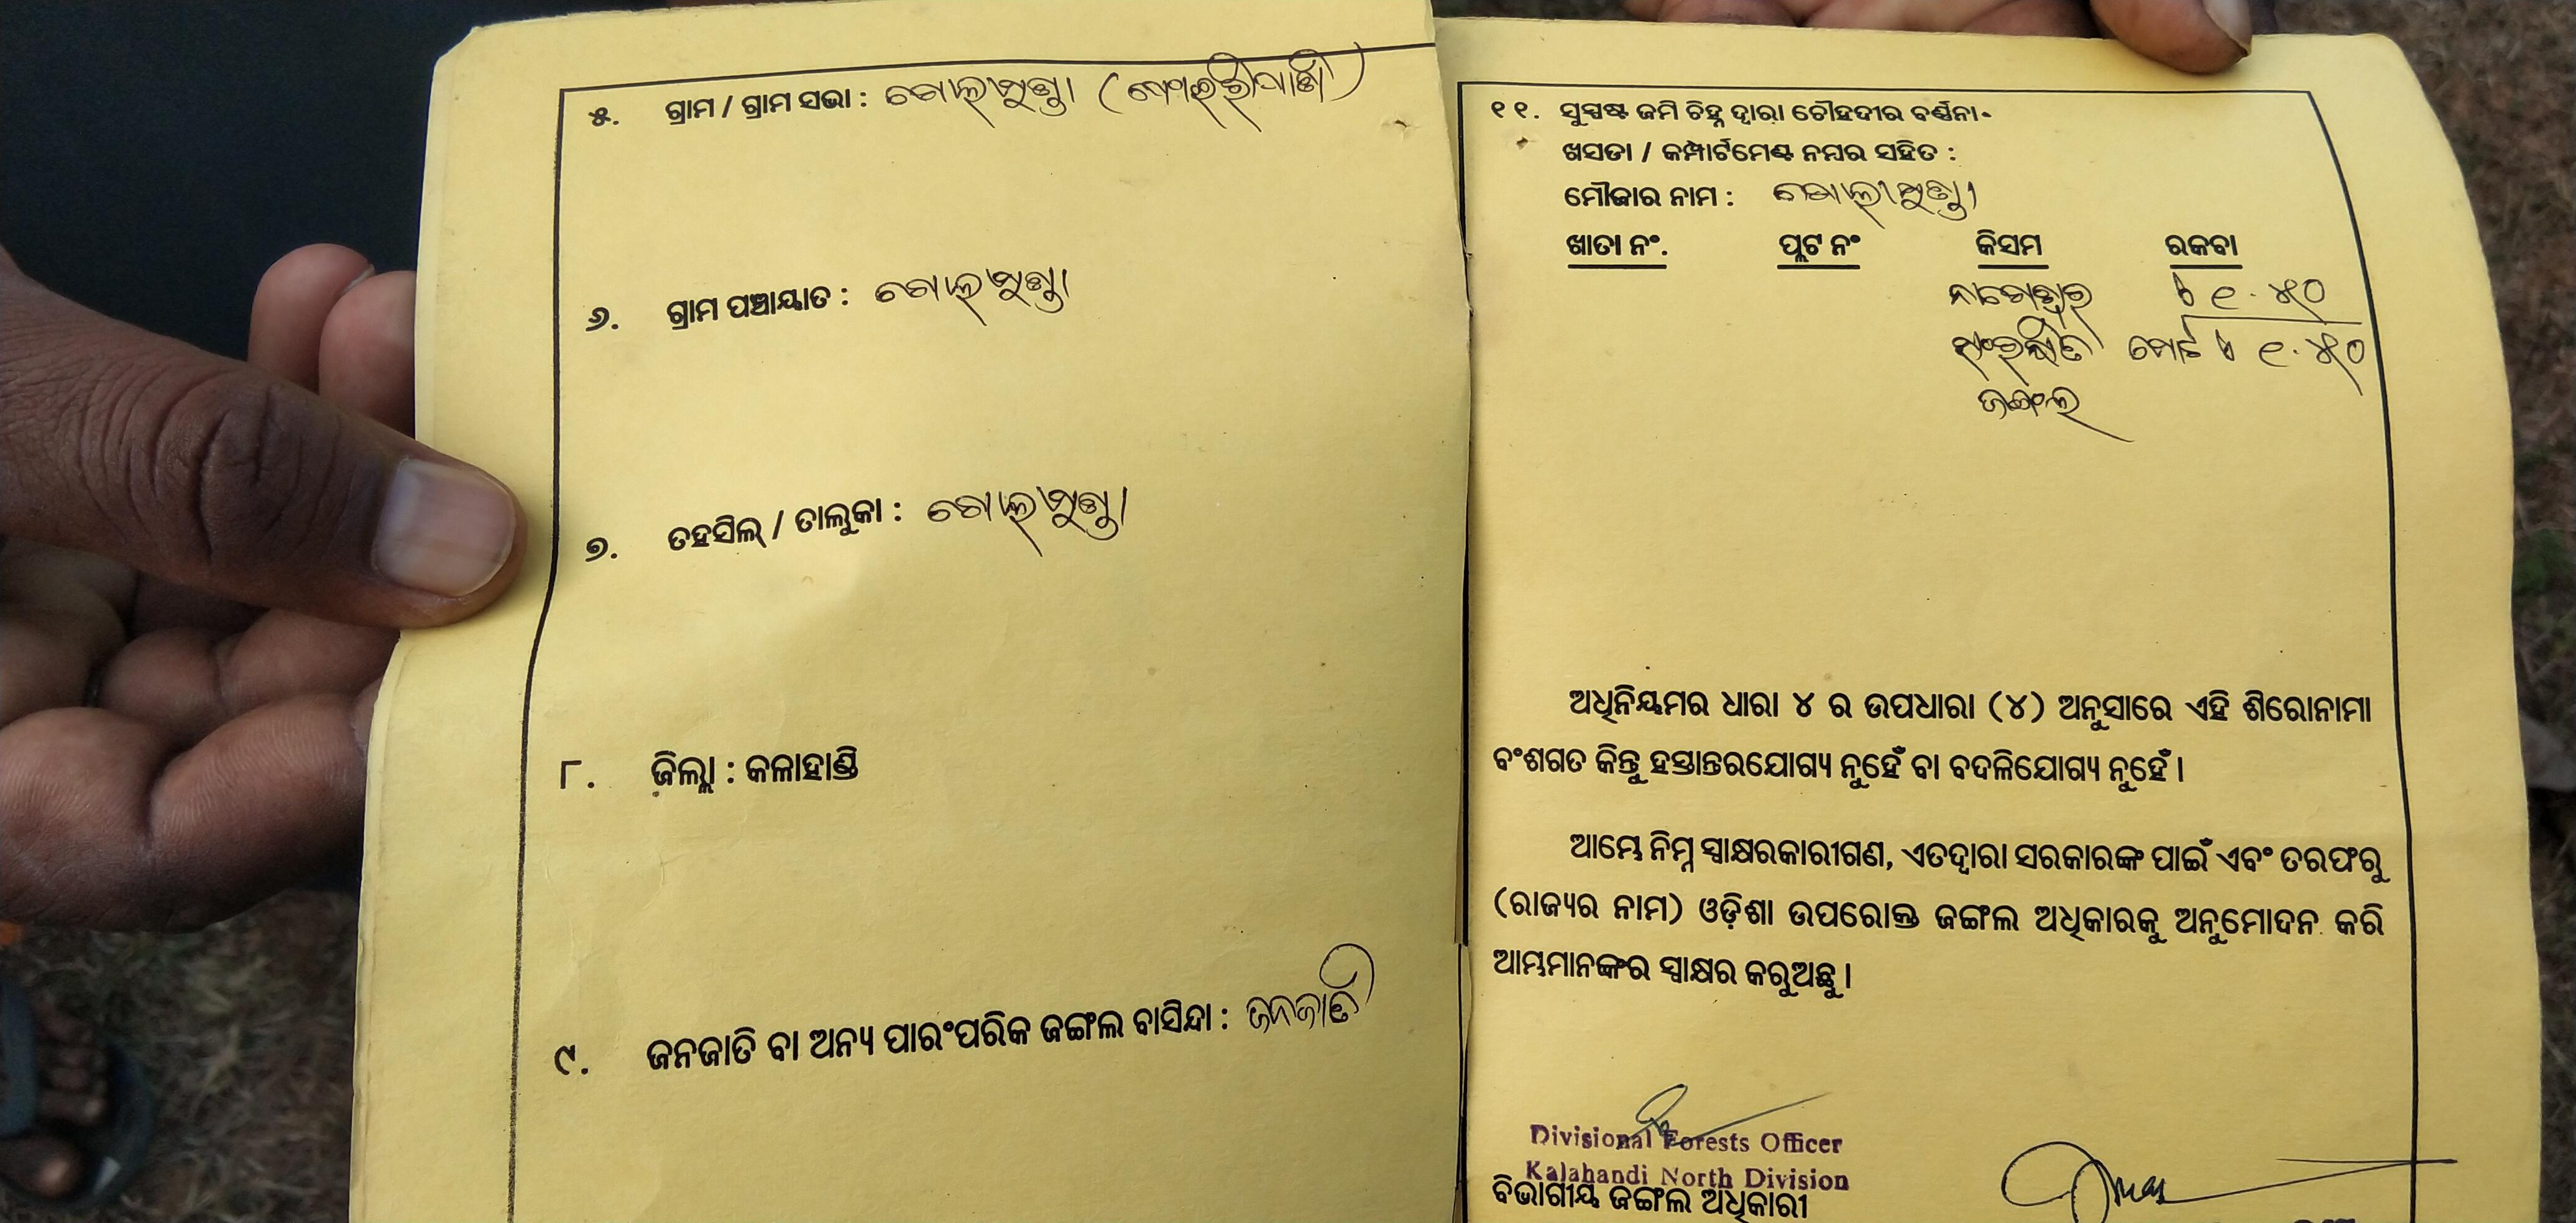 ୫. ଗ୍ରାମ / ଗ୍ରାମ ସଭା : ଗୋଲାମୁଣ୍ଡା
୬. ଗ୍ରାମ ପଞ୍ଚାୟାତ : ଗୋଲାମୁଣ୍ଡା
୭. ତହସିଲ୍ / ତାଲୁକା : ଗୋଲାମୁଣ୍ଡା
୮. ଜିଲ୍ଲା : କଳାହାଣ୍ଡି
୯. ଜନଜାତି ବା ଅନ୍ୟ ପାରଂପରିକ ଜଙ୍ଗଲ ବାସିନ୍ଦା : ଜନଜାତି
୧୧. ସୁସ୍ପଷ୍ଟ ଜମି ଚିହ୍ନ ଦ୍ୱାରା ଚୌହଦୀର ବର୍ଣ୍ଣନା-
ଖସଡା / କମ୍ପାର୍ଟମେଣ୍ଟ ନମ୍ବର ସହିତ :
ମୌଜାର ନାମ : ଗୋଲାମୁଣ୍ଡା
ଖାତା ନଂ. ପ୍ଲଟ ନଂ କିସମ ରକବା
୧.୫୦
ସଂରକ୍ଷିତ ମୋଟ ୧.୫୦
ଜଙ୍ଗଲ
ଅଧିନିୟମର ଧାରା ୪ ର ଉପଧାରା (୪) ଅନୁସାରେ ଏହି ଶିରୋନାମା
ବଂଶଗତ କିନ୍ତୁ ହସ୍ତାନ୍ତରଯୋଗ୍ୟ ନୁହେଁ ବା ବଦଳିଯୋଗ୍ୟ ନୁହେଁ ।
ଆମ୍ଭେ ନିମ୍ନ ସ୍ୱାକ୍ଷରକାରୀଗଣ, ଏତଦ୍ୱାରା ସରକାରଙ୍କ ପାଇଁ ଏବଂ ତରଫରୁ
(ରାଜ୍ୟର ନାମ) ଓଡ଼ିଶା ଉପରୋକ୍ତ ଜଙ୍ଗଲ ଅଧିକାରକୁ ଅନୁମୋଦନ କରି
ଆମ୍ଭମାନଙ୍କର ସ୍ୱାକ୍ଷର କରୁଅଛୁ ।
Divisional Forests Officer
Kalahandi North Division
ବିଭାଗୀୟ ଜଙ୍ଗଲ ଅଧିକାରୀ